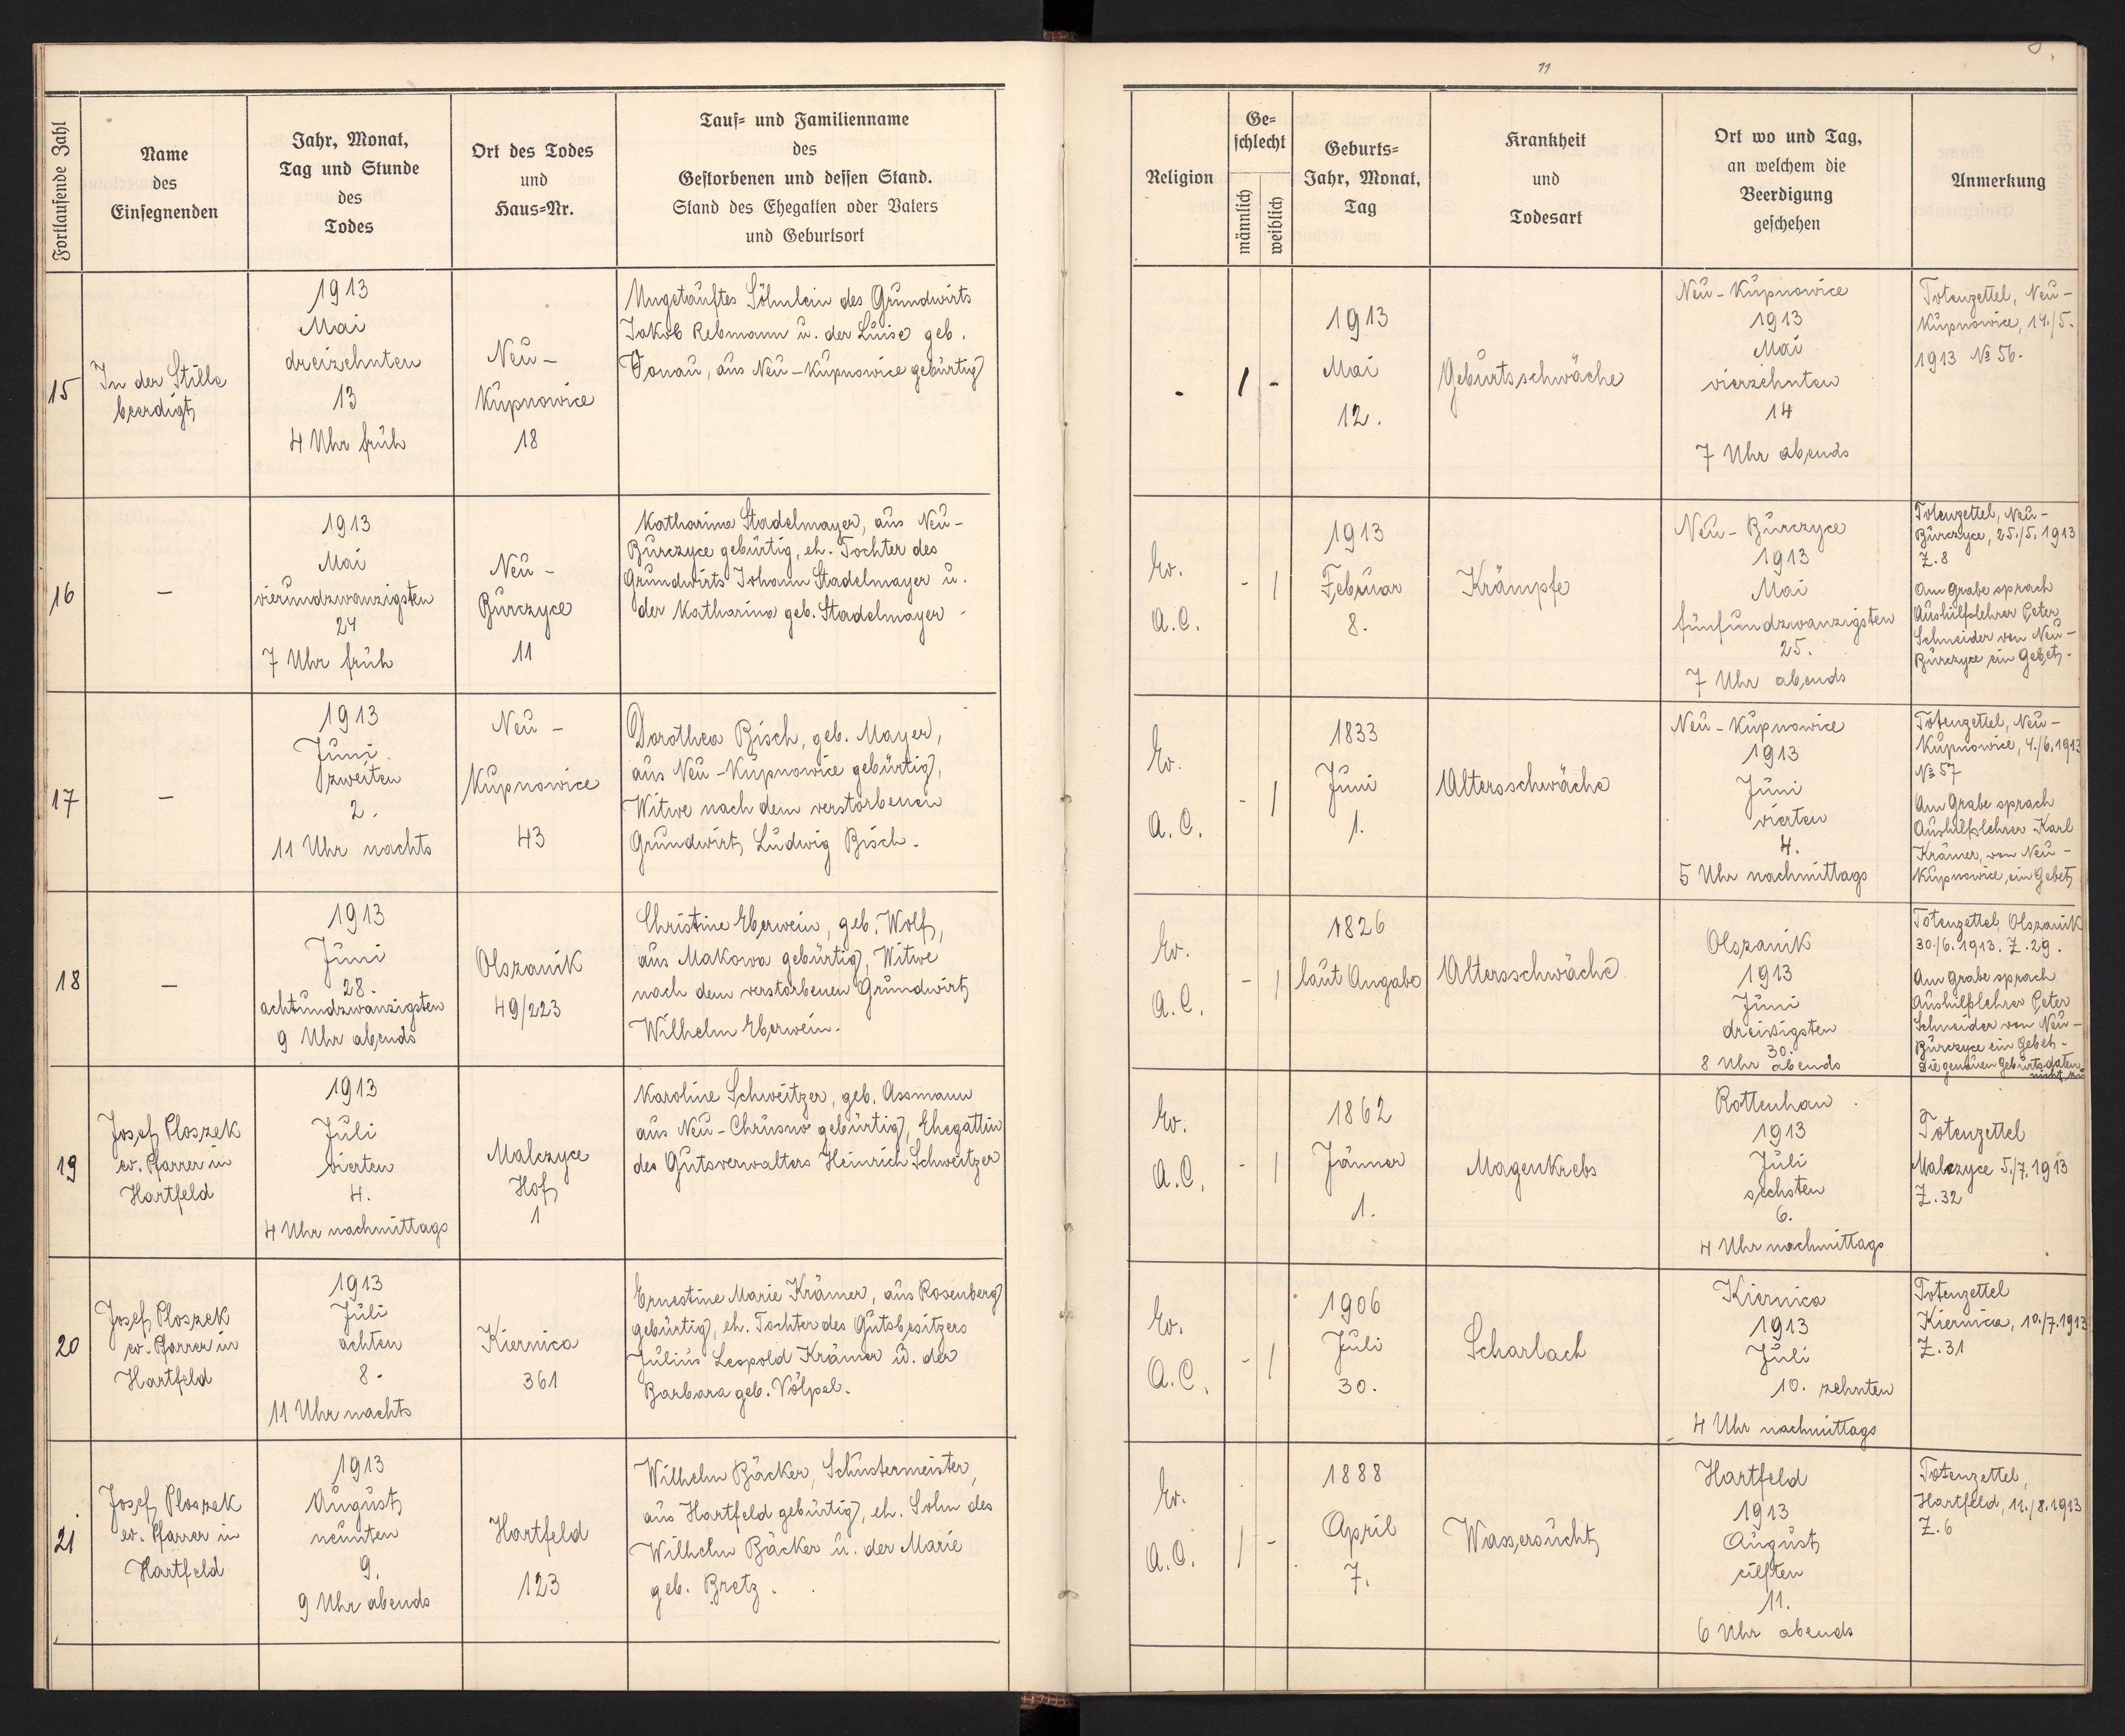 11
Fortlaufende Zahl
Name
des
Einsegnenden
Jahr, Monat,
Tag und Stunde
des
Todes
Ort des Todes
und
Haus=Nr.
Tauf= und Familienname
des
Gestorbenen und dessen Stand.
Stand des Ehegatten oder Vaters
und Geburtsort
Religion
Ge=
schlecht
männlich
weiblich
Geburts=
Jahr, Monat,
Tag
Krankheit
und
Todesart
Ort wo und Tag,
an welchem die
Beerdigung
geschehen
Anmerkung
15
In der Stille
beerdigt
1913
Mai
dreizehnten
13
4 Uhr früh
Neu-
Kupnowice
18
Ungetauftes Söhnlein des Grundwirts
Jakob Rebmann u. der Luise geb.
Donau, aus Neu-Kupnowice gebürtig
-
1 -
1913
Mai
12.
Geburtsschwäche
Neu-Kupnowice
1913
Mai
vierzehnten
14
7 Uhr abends
Totenzettel, Neu-
Kupnowice, 14./5.
1913 № 56.
16
-
1913
Mai
vierundzwanzigsten
24
7 Uhr früh
Neu-
Burczyce
11
Katharina Stadelmayer, aus Neu-
Burczyce gebürtig, eh. Tochter des
Grundwirts Johann Stadelmayer u.
der Katharina geb. Stadelmayer -
Ev.
A.C.
- 1
1913
Februar
8.
Krämpfe
Neu-Burczyce
1913
Mai
fünfundzwanzigsten
25.
7 Uhr abends
Totenzettel, Neu-
Burczyce, 25./5. 1913
Z. 8
Am Grabe sprach
Aushilfslehrer Peter
Schneider von Neu-
Burczyce ein Gebet.
17
-
1913
Juni.
zweiten
2.
11 Uhr nachts
Neu-
Kupnowice
43
Dorothea Bisch, geb. Mayer,
aus Neu-Kupnowice gebürtig,
Witwe nach dem verstorbenen
Grundwirt Ludwig Bisch.
Ev.
A.C.
- 1
1833
Juni
1.
Altersschwäche
Neu-Kupnowice
1913
Juni
vierten
4.
5 Uhr nachmittags
Totenzettel, Neu-
Kupnowice, 4./6. 1913
№ 57
Am Grabe sprach
Aushilfslehrer Karl
Krämer, von Neu-
Kupnowice, ein Gebet
18
-
1913
Juni
28.
achtundzwanzigsten
9 Uhr abends
Olszanik
49/223
Christine Eberwein, geb. Wolf,
aus Makowa gebürtig, Witwe
nach dem verstorbenen Grundwirt
Wilhelm Eberwein.
Ev.
A.C.
- 1
1826
laut Angabe
Altersschwäche
Olszanik
1913
Juni
dreißigsten
30.
8 Uhr abends
Totenzettel, Olszanik
30./6. 1913. Z. 29.
Am Grabe sprach
Aushilfslehrer Peter
Schneider von Neu-
Burczyce ein Gebet.
Die genauen Geburtsdaten
nicht
19
Josef Ploszek
ev. Pfarrer in
Hartfeld
1913
Juli
vierten
4.
4 Uhr nachmittags
Malczyce
Hof
1
Karoline Schweitzer, geb. Assmann
aus Neu-Chrusno gebürtig, Ehegattin
des Gutsverwalters Heinrich Schweitzer
Ev.
A.C.
- 1
1862
Jänner
1.
Magenkrebs
Rottenhan
1913
Juli
sechsten
6.
4 Uhr nachmittags
Totenzettel
Malczyce 5./7. 1913
Z. 32
20
Josef Ploszek
ev. Pfarrer in
Hartfeld
1913
Juli
achten
8.
11 Uhr nachts
Kiernica
361
Ernestine Marie Krämer, aus Rosenberg
gebürtig, eh. Tochter des Gutsbesitzers
Julius Leopold Krämer u. der
Barbara geb. Völpel.
Ev.
A.C.
- 1
1906
Juli
30.
Scharlach
Kiernica
1913
Juli
10. zehnten
4 Uhr nachmittags
Totenzettel
Kiernica, 10./7. 1913
Z. 31
21
Josef Ploszek
ev. Pfarrer in
Hartfeld
1913
August
neunten
9.
9 Uhr abends
Hartfeld
123
Wilhelm Bäcker, Schustermeister,
aus Hartfeld gebürtig, eh. Sohn des
Wilhelm Bäcker u. der Marie
geb. Bretz.
Ev.
A.C.
1 -
1888
April
7.
Wassersucht
Hartfeld
1913
August
eilften
11.
6 Uhr abends
Totenzettel,
Hartfeld, 11./8. 1913
Z. 6